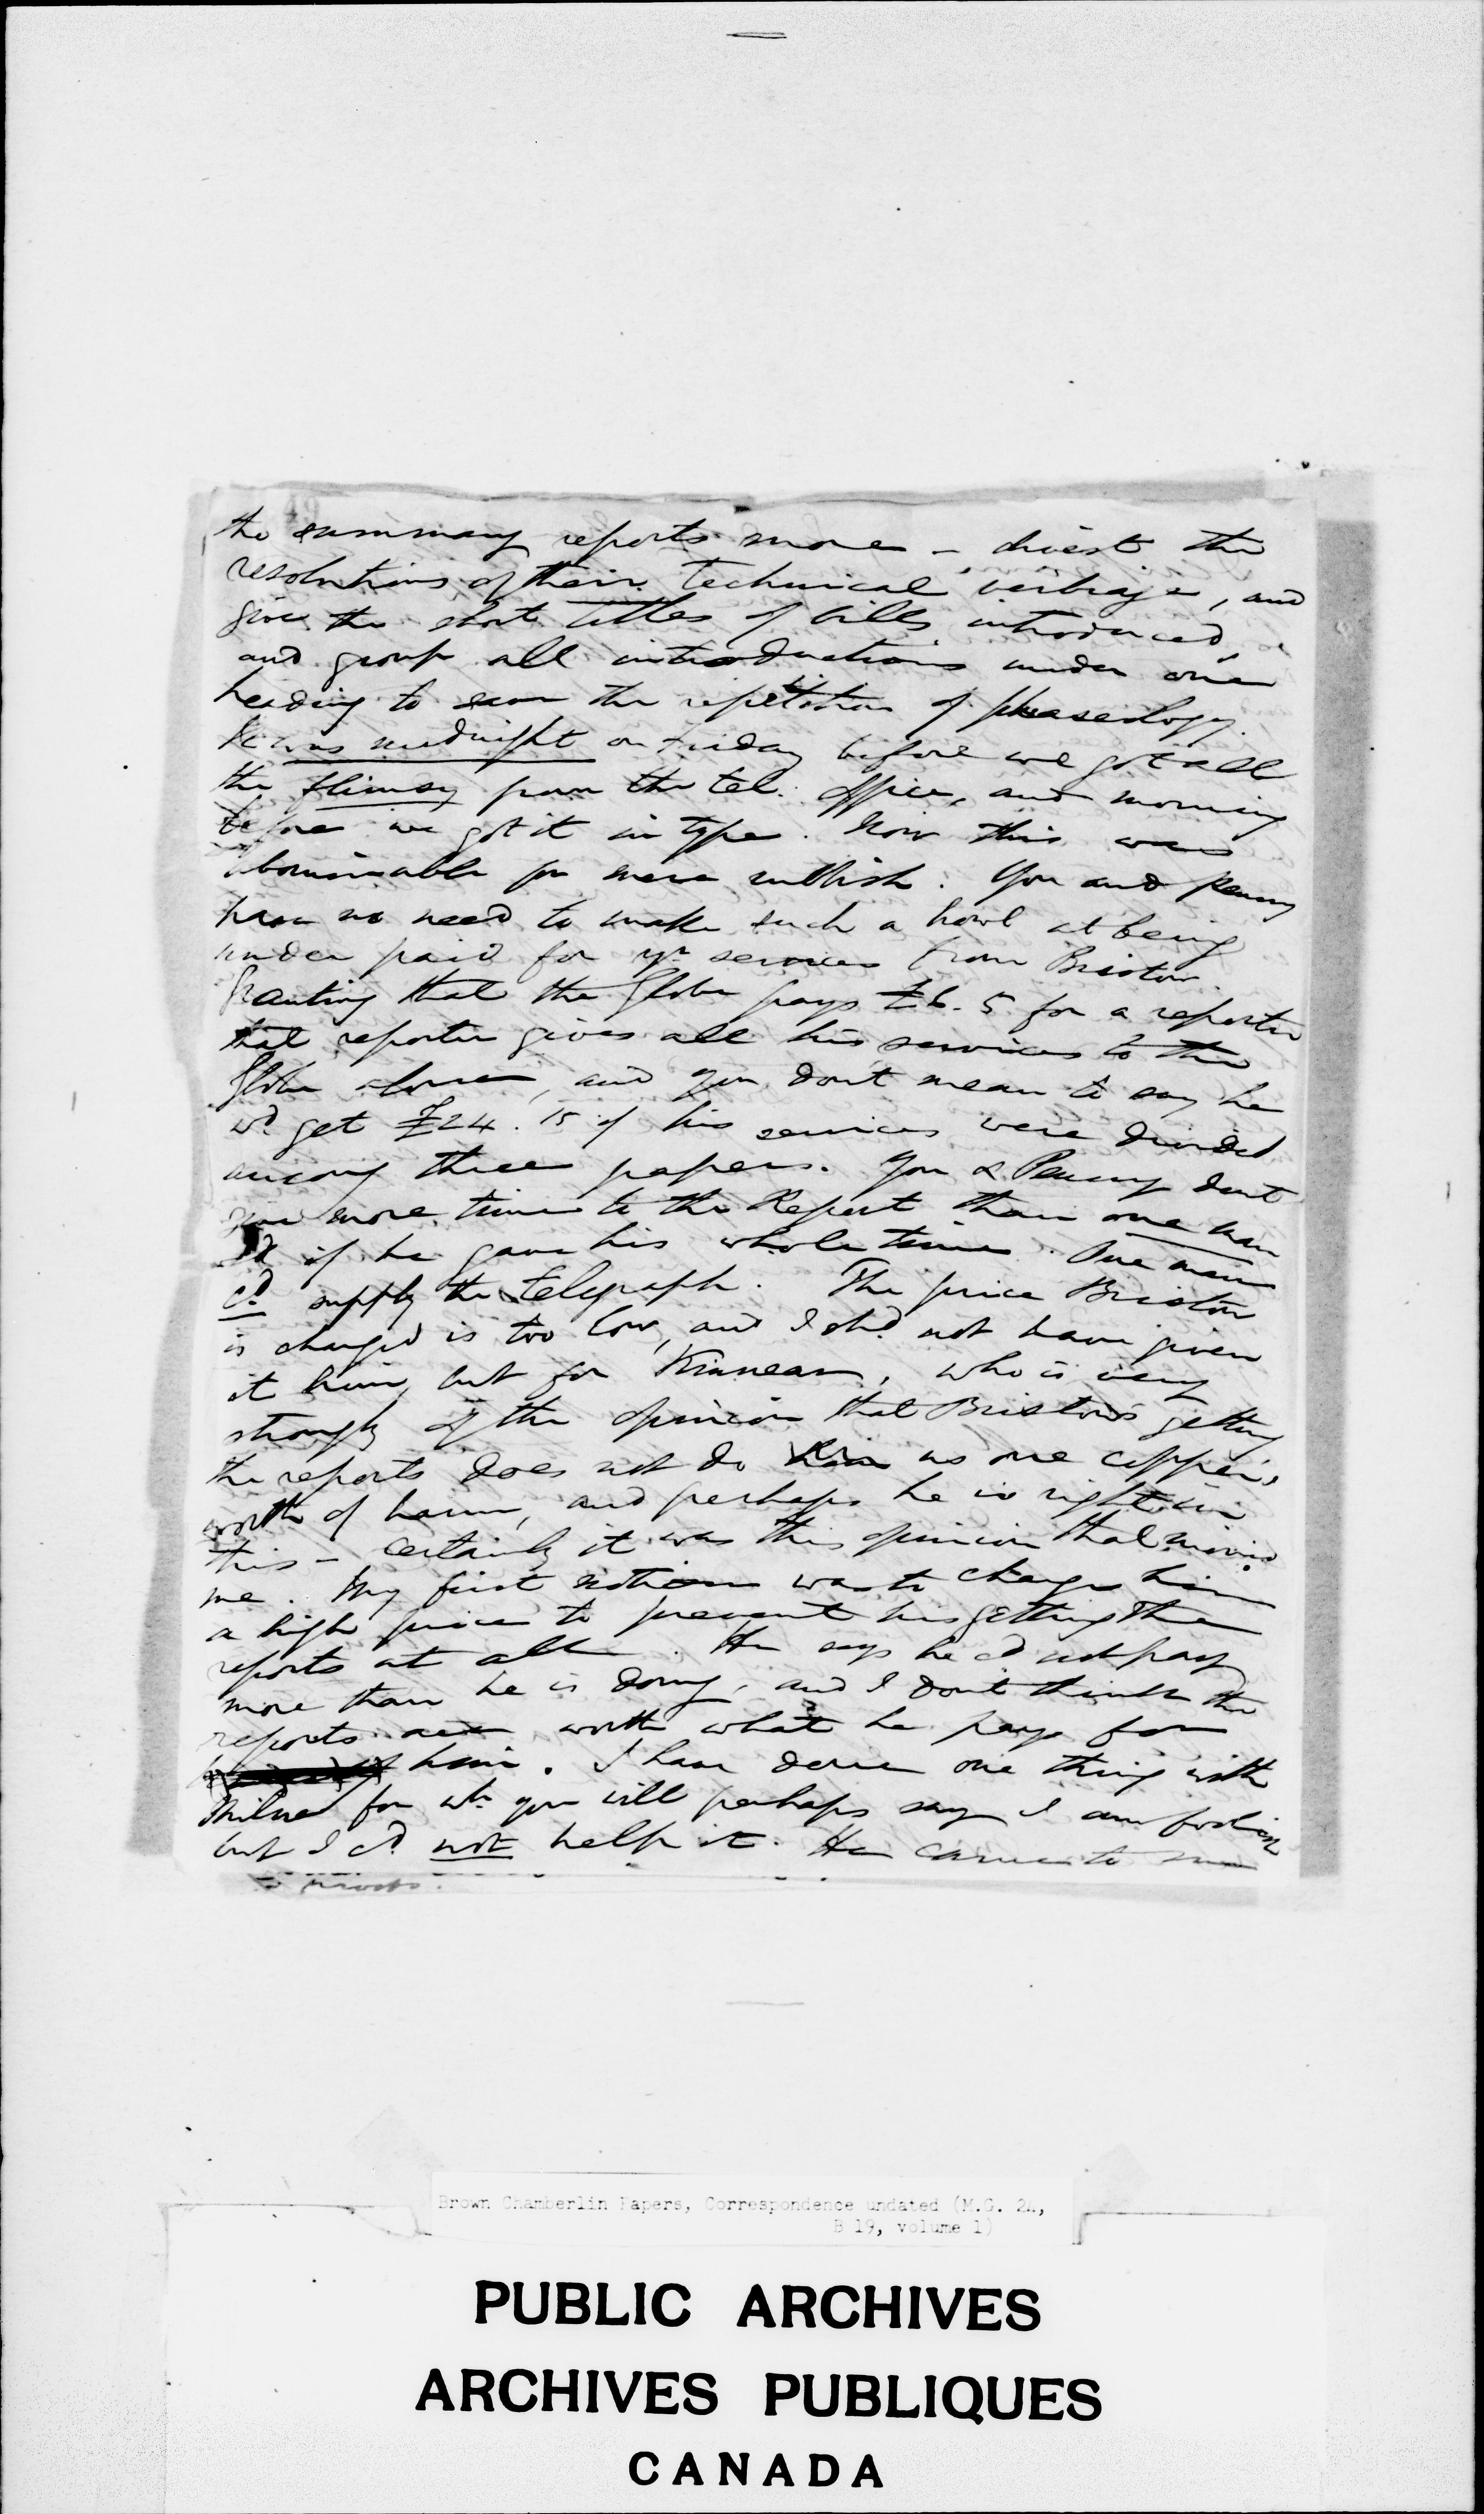 the summary reports more – divest the
resolutions of their technical verbiage, and
give the short titles of bills introduced,
and group all introductions under one
heading to save the repetition of phraseology.
It was midnight on Friday before we got all
the flimsy from the tel. office, and morning
before we got it in type. Now this was
abominable for mere rubbish. You and Penny
have no need to make such a howl at being
under paid for yr services from Bristow.
Granting that the Globe pays £6. 5 for a reporter
that reporter gives all his services to the
Globe alone, and you don't mean to say he
wd get £24. 15 if his services were divided
among three papers. You & Penny dont
give more time to the Report than one man
if he gave his whole time. One man
cd supply the Telegraph. The price Bristow
is charged is too low, and I shd not have given
it him, but for Kinnear, who is very
strongly of the opinion that Bristow's getting
the reports does not do us one copper's
worth of harm, and perhaps he is right in
this – certainly it was this opinion that moved
me. My first notion was to charge him
a high price to prevent his getting the
reports at all. He says he cd not pay
more than he is doing, and I don't think the
reports are worth what he pays for
him. I have done one thing with
Milne for wh you will perhaps say I am foolish
but I cd not help it. He came to me
Brown Chamberlin Papers, Correspondence undated (M.G. 24,
B 19, volume 1)
PUBLIC ARCHIVES
ARCHIVES PUBLIQUES
CANADA